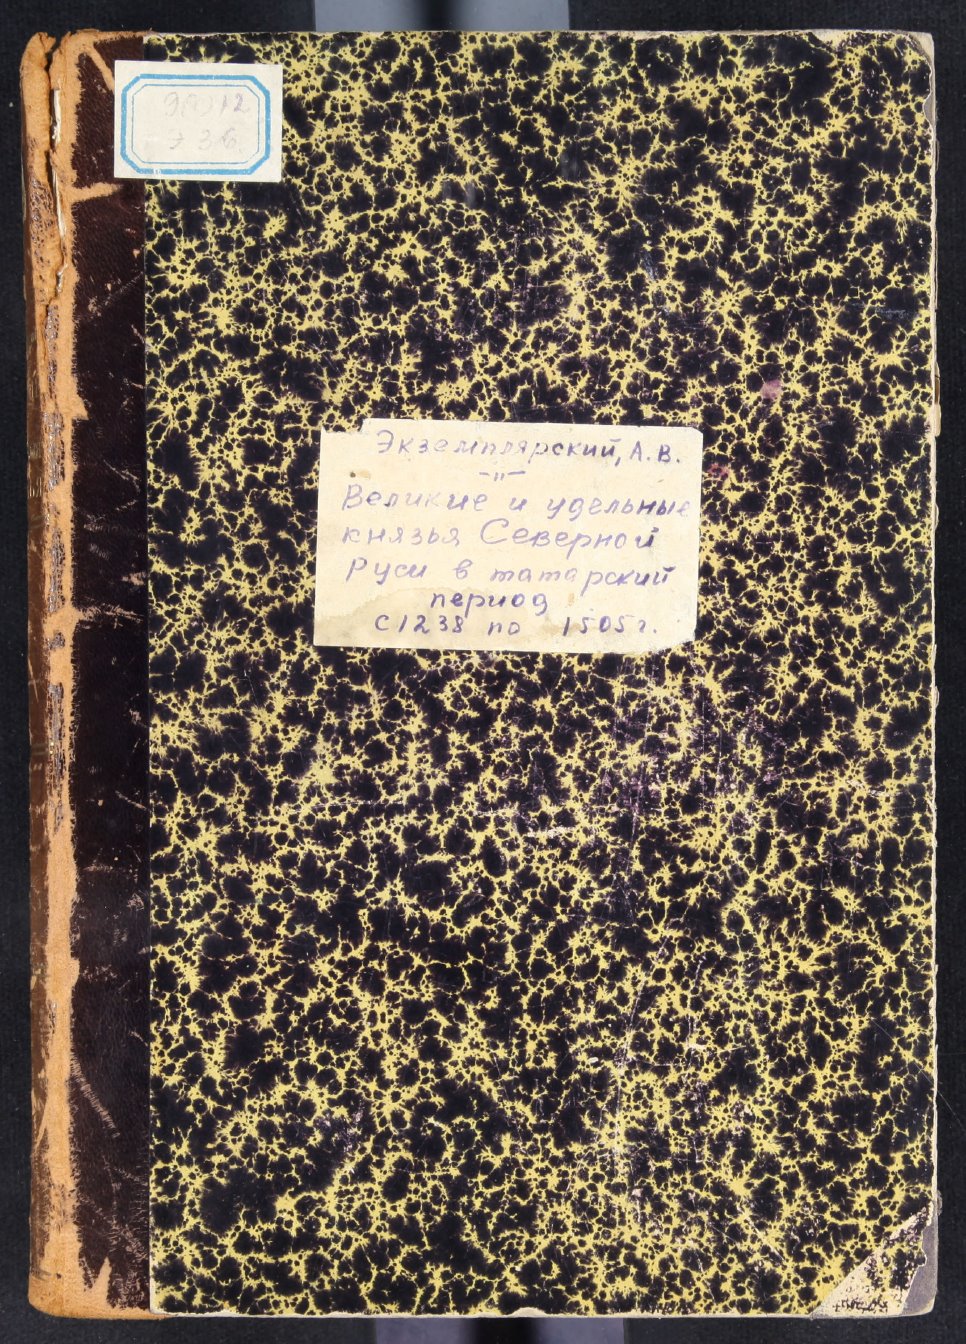 Э 36
Экземплярский, А. В.
— " —
Великие и удельные
князья Северной
Руси в татарский
период
с 1238 по 1505 г.